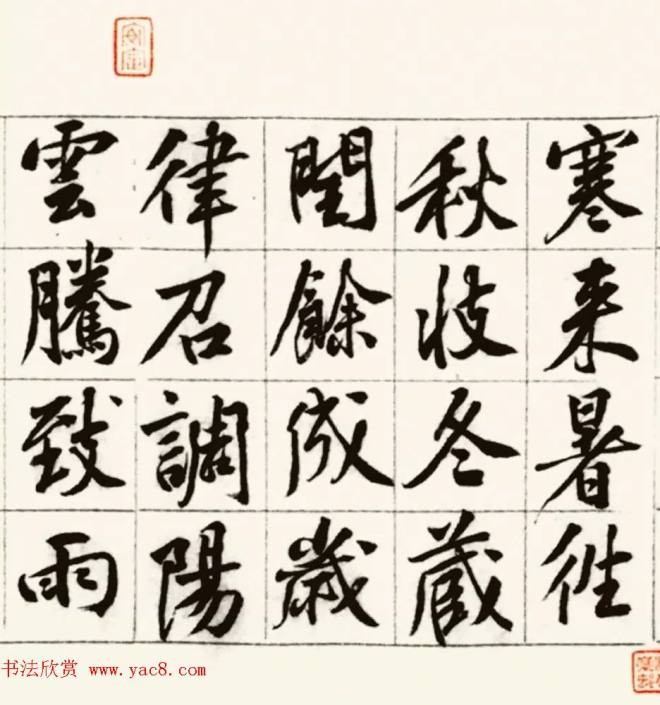 寒来暑往
秋收冬藏
閏餘成歲
律召調陽
雲騰致雨
书法欣赏 www.yac8.com